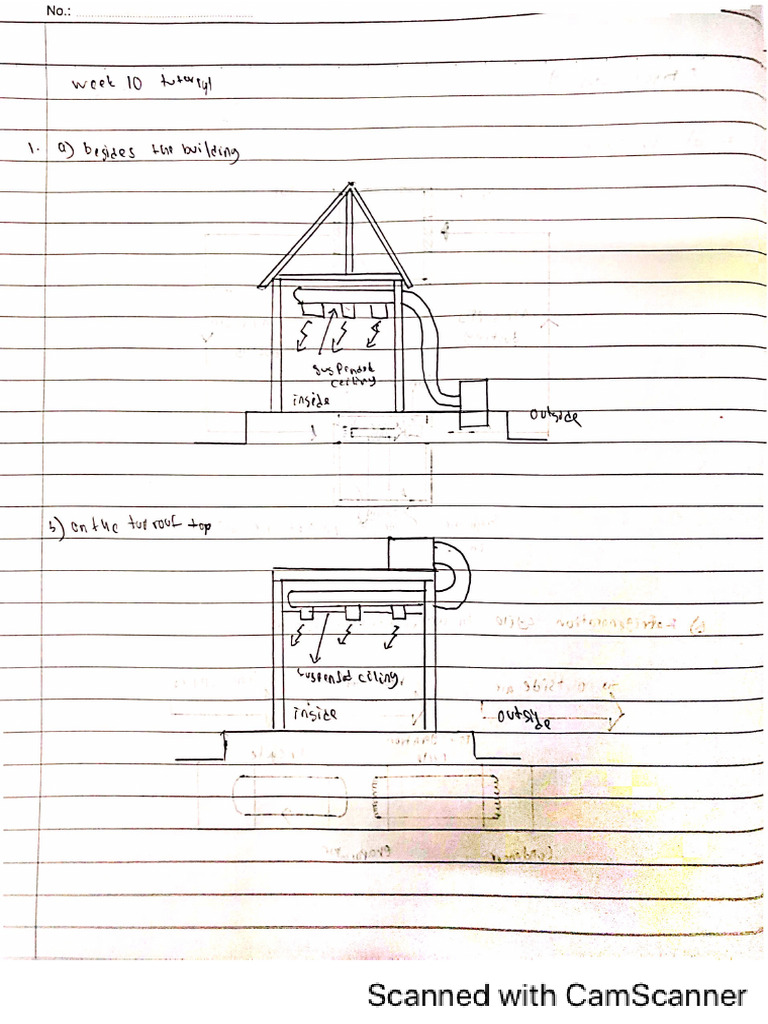 No.:
week 10 tutorial
1. a) besides the building
suspended
ceiling
inside
outside
b) on the roof top
suspended ceiling.
inside
outside
Scanned with CamScanner